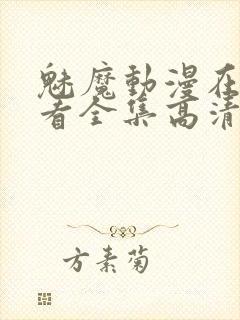 魅魔動漫在
看全集高清
方素菊